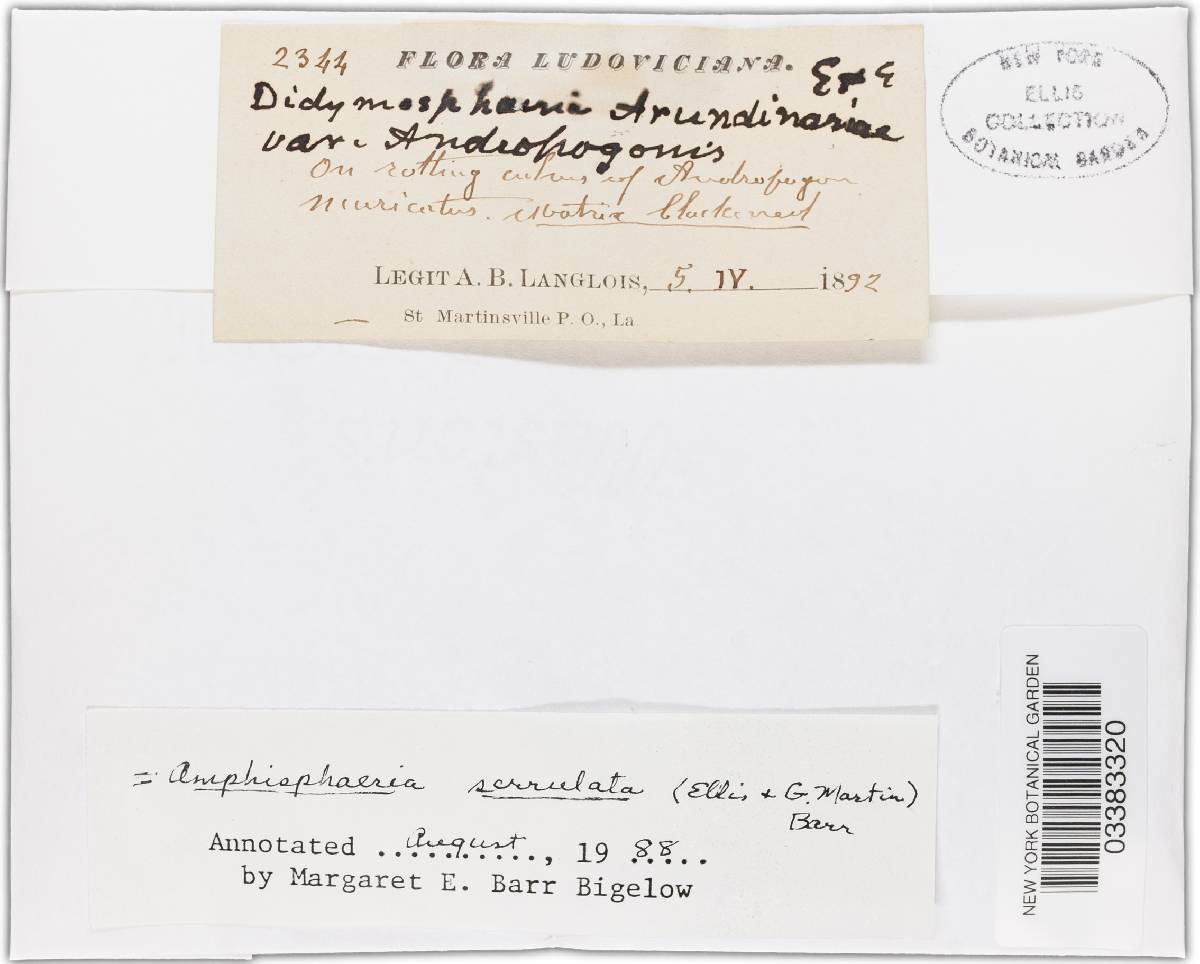 2344 FLORA LUDOVICIANA. E & E
Didymosphaeria Arundinariae
var. Andropogonis
On rotting culms of Andropogon
muricatus. Matrix blackened
LEGIT A. B. LANGLOIS, 5. IV. 1892
St Martinsville P. O., La
NEW YORK
ELLIS
COLLECTION
BOTANICAL GARDEN
= Amphisphaeria serrulata (Ellis & G. Martin)
Barr
Annotated ..August.., 19 88..
by Margaret E. Barr Bigelow
NEW YORK BOTANICAL GARDEN
03383320